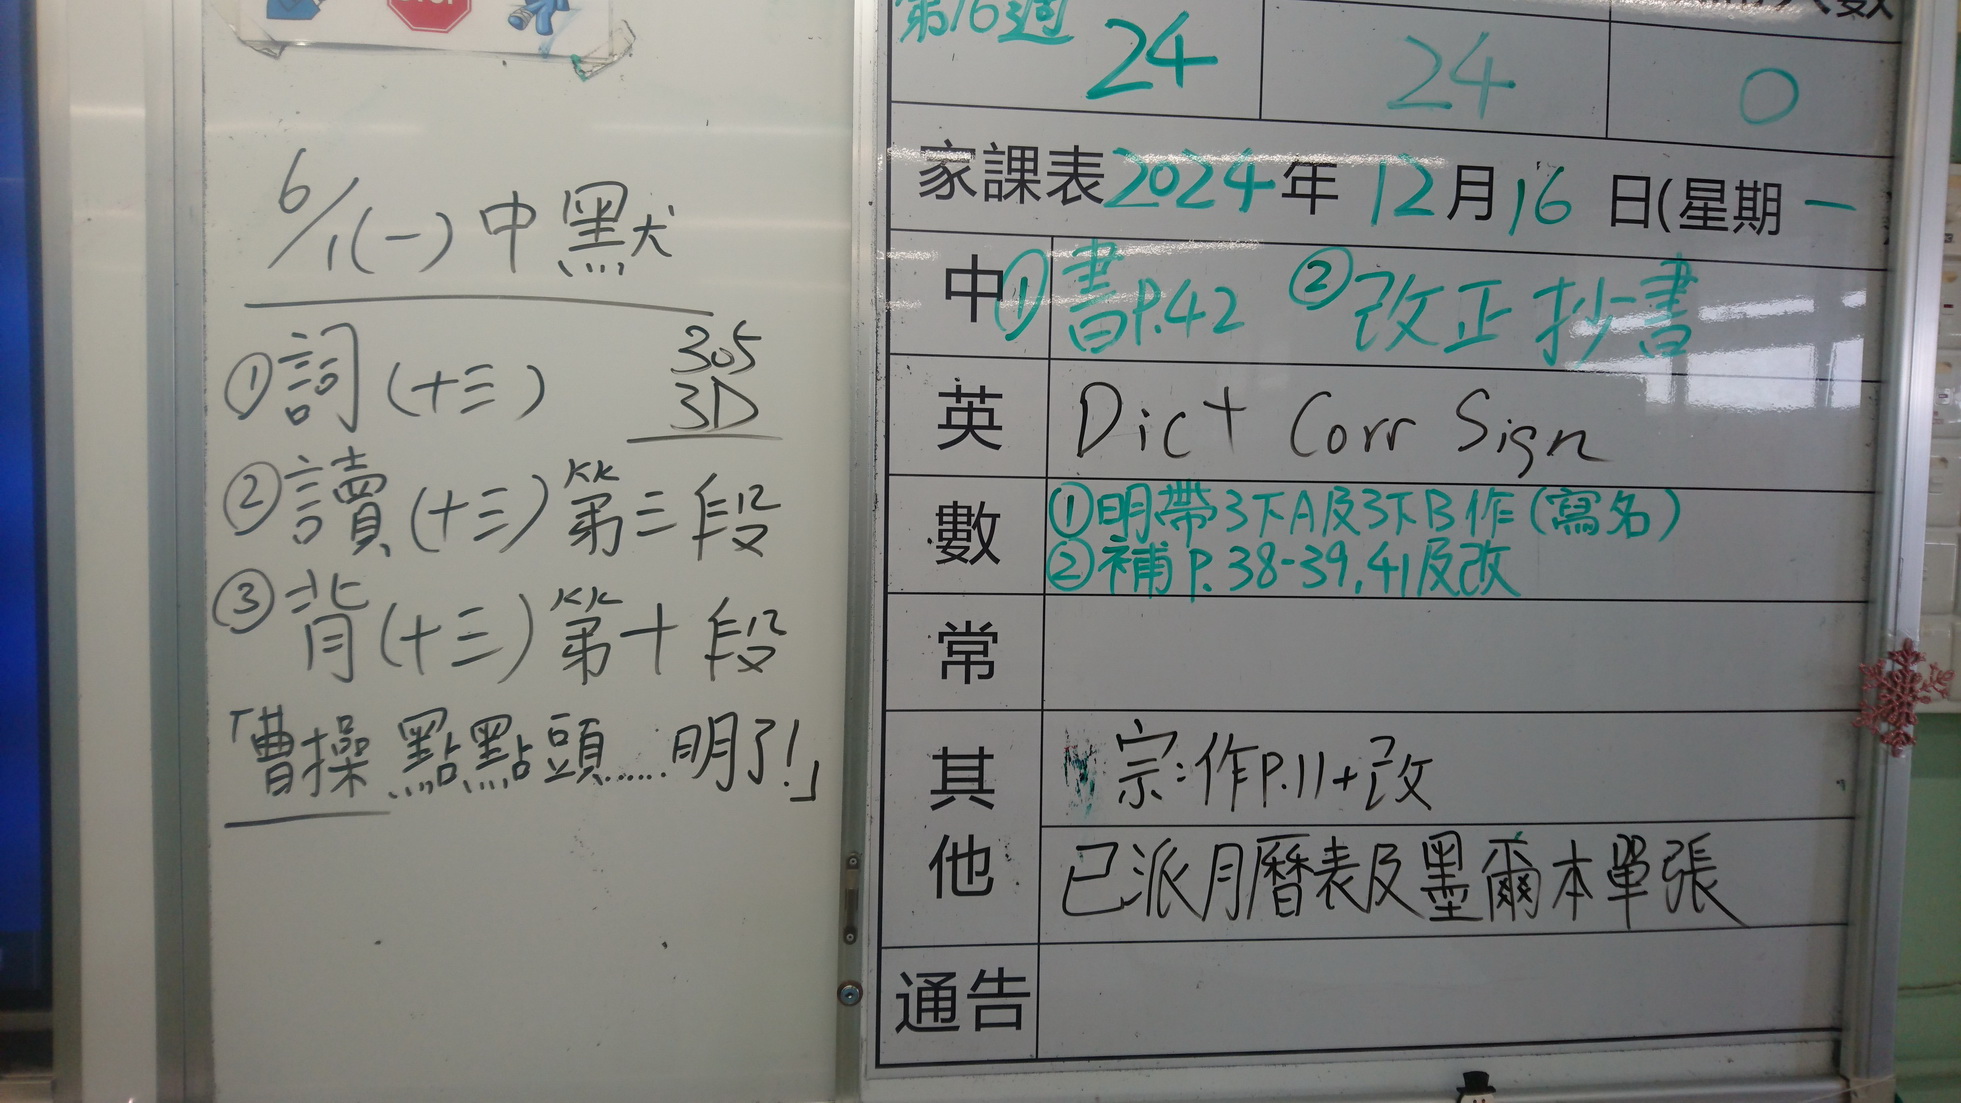 6/1(一)中默
①詞(十三)
305
3D
②讀(十三)第三段
③背(十三)第十段
「曹操點點頭......明了!」
第16週
24
24
0
家課表2024年12月16日(星期一
中
①書P.42 ②改正抄書
英
Dict Corr Sign
數
①明帶3下A及3下B作(寫名)
②補P.38-39,41及改
常
其他
宗:作P.11+改
已派月曆表及墨爾本單張
通告